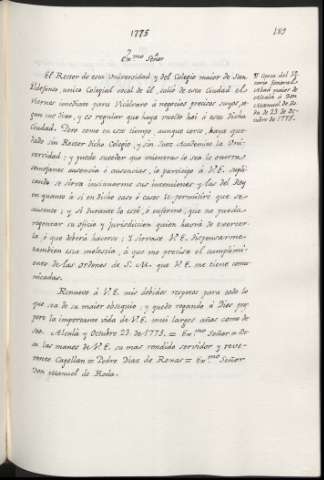 1775
185
Exmo Señor
El Rector de esta Universidad y del Colegio maior de San
Ildefonso, unico Colegial vocal de él, salió de esta Ciudad el
Viernes inmediato para Vicálvaro à negocios precisos suyos, se-
gun sus dice, y es regular que haya vuelto hoi à esta dicha
Ciudad. Pero como en ese tiempo, aunque corto, haya que-
dado sin Rector dicho Colegio, y sin Juez Academico la Uni-
versidad; y puede suceder que mientras lo sea le ocurran
semejantes ausencias ò ausencias, lo participo à V.E. supli-
cando se sirva insinuarme sus intenciones y las del Rey
en quanto à si en dicho caso ò casos le permitiré que se
ausente; y si durante la esté, ò enfermo, que no pueda
regentar su oficio y Jurisdiccion quien haurá de exercer-
la, ò que deberá hacerse; Y sirvase V.E. dispensarme
tambien esta molestia, à que me precisa el cumplimi-
ento de las ordenes de S. M. que V.E. me tiene comu-
nicadas.
Renuevo à V.E. mis debidos respetos para todo lo
que sea de su maior obsequio; y quedo rogando à Dios pros-
pere la importante vida de V.E. mui largos años como de-
seo. Alcalá y Octubre 23 de 1775. = Exmo Señor = Be-
sa las manos de V.E. su mas rendido servidor y reve-
rente Capellan = Pedro Diaz de Roxas = Exmo Señor
Don Manuel de Roda.
Copia del
Alcalá à Don
Manuel de Ro-
da de 23 de Oc-
tubre de 1775.